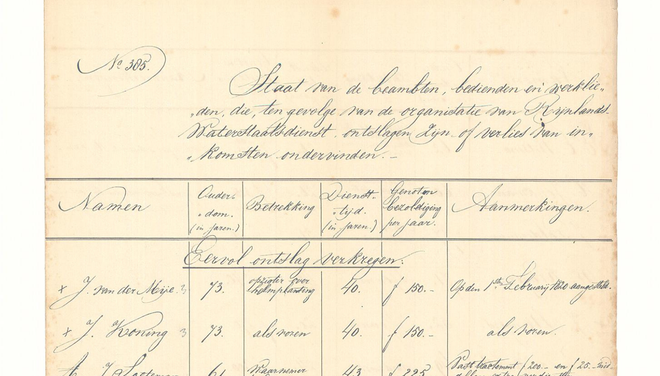 No 385.
Staat van de beambten, bedienden en werklie-
„den, die, ten gevolge van de organisatie van Rijnlands
Waterstaatsdienst ontslagen zijn of verlies van in-
„komsten ondervinden.-
Namen
Ouder-
dom.
(in jaren.)
Betrekking
Dienst-
tijd.
(in jaren)
Genoten
bezoldiging
per jaar.
Aanmerkingen.
Eervol ontslag verkregen.
x J. van der Meije 73. opzigter over 40. f 150.- Op den 1sten February
helmplanting
x J. Koning 73. als voren 40. f 150.- als voren.
J. 61. 43. f 225. Vast tractement f 200.- en f 25.-